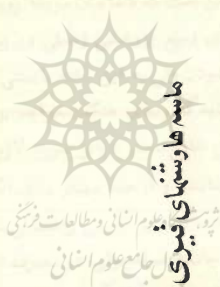 ماسه‌ها و شنهای قیری
پژوهشگاه علوم انسانی و مطالعات فرهنگی
پرتال جامع علوم انسانی